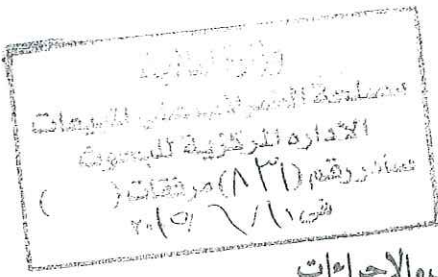 وزارة المالية
مصلحة الضرائب على المبيعات
الادارة المركزية للبحوث
صادر رقم (٨٣١) مرفقات ( )
والإجراءات